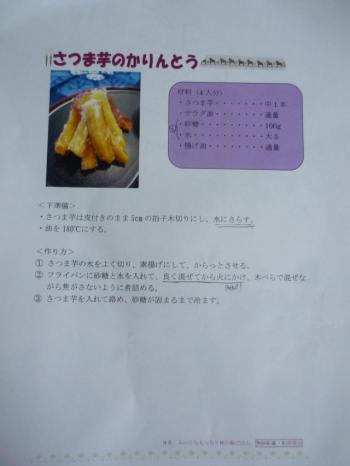 さつま芋のかりんとう
材料（4人分）
・さつま芋・・・・・・・・中1本
・サラダ油・・・・・・・・適量
・砂糖・・・・・・・・・・100g
・水・・・・・・・・・・・大3
・揚げ油・・・・・・・・・適量
＜下準備＞
・さつま芋は皮付きのまま5cmの拍子木切りにし、水にさらす。
・油を180℃にする。
＜作り方＞
① さつま芋の水をよく切り、素揚げにして、からっとさせる。
② フライパンに砂糖と水を入れて、良く混ぜてから火にかけ、木べらで混ぜな
がら焦がさないように煮詰める。
③ さつま芋を入れて絡め、砂糖が固まるまで冷ます。